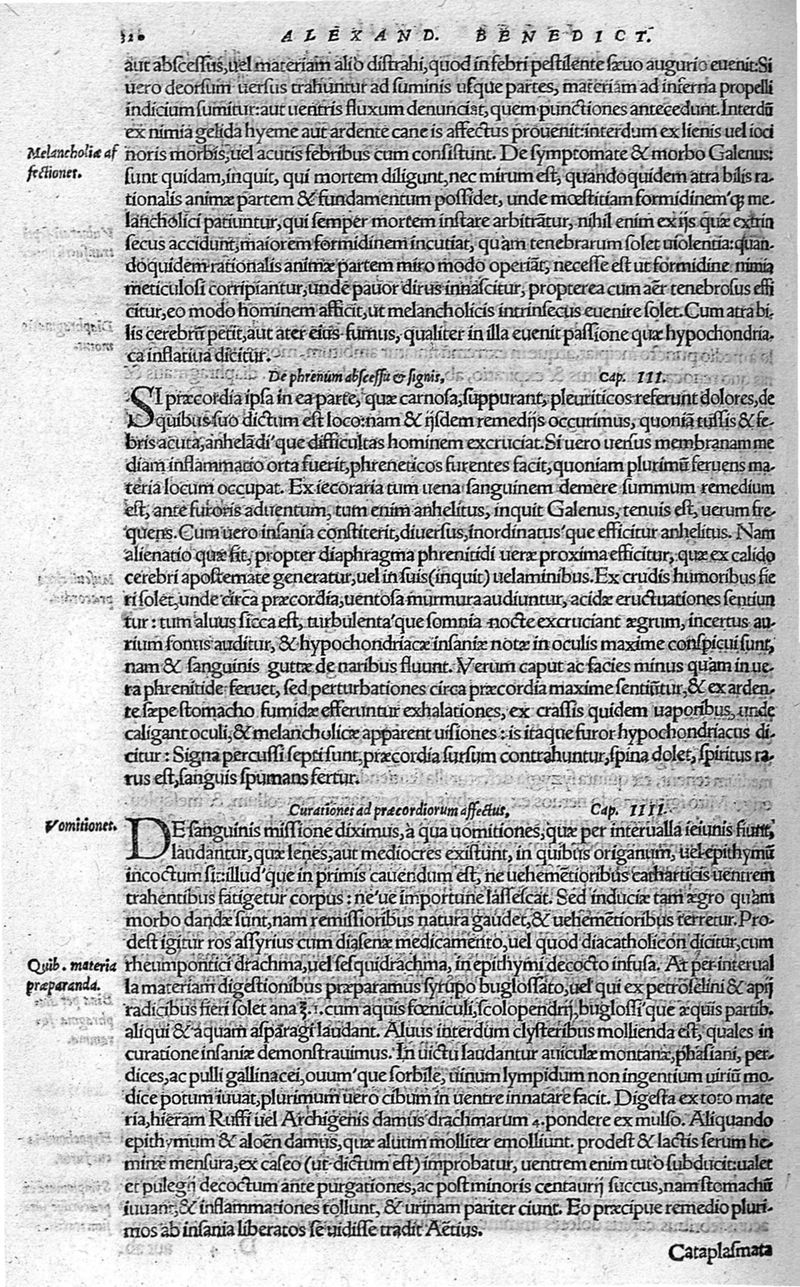 320 ALEXAND. BENEDICT.
aut abscessus, uel materiam alio distrahi, quod in febri pestilente sæuo augurio euenit: Si
uero deorsum uersus trahuntur ad suminis usque partes, materiam ad inferna propelli
indicium sumitur: aut uentris fluxum denunciat, quem punctiones antecedunt. Interdū
ex nimia gelida hyeme aut ardente cane is affectus prouenit: interdum ex lienis uel ioci
Melancholiæ af
fectiones.
noris morbis, uel acutis febribus cum consistunt. De symptomate & morbo Galenus:
sunt quidam, inquit, qui mortem diligunt, nec mirum est, quandoquidem atra bilis ra-
tionalis animæ partem & fundamentum possidet, unde mœstitiam formidinem'q; me-
lancholici patiuntur, qui semper mortem instare arbitrātur, nihil enim ex ijs quæ extrin
secus accidunt, maiorem formidinem incutiat, quàm tenebrarum solet uiolentia: quan-
doquidem rationalis animæ partem miro modo operiāt, necesse est ut formidine nimia
meticulosi corripiantur, unde pauor dirus innascitur, propterea cum aër tenebrosus effi
citur, eo modo hominem afficit, ut melancholicis intrinsecus euenire solet. Cum atra bi-
lis cerebrū petit, aut ater eius fumus, qualiter in illa euenit passione quæ hypochondria-
ca inflatiua dicitur.
De phrenum abscessu & signis, Cap. III.
SI præcordia ipsa in ea parte, quæ carnosa, suppurant, pleuriticos referunt dolores, de
quibus suo dictum est loco: nam & ijsdem remedijs occurimus, quoniā tussis & fe-
bris acuta, anhelādi'que difficultas hominem excruciat. Si uero uersus membranam me
diam inflammatio orta fuerit, phreneticos furentes facit, quoniam plurimū feruens ma-
teria locum occupat. Ex iecoraria tum uena sanguinem demere summum remedium
est, ante furoris aduentum, tum enim anhelitus, inquit Galenus, tenuis est, uerum fre-
quens. Cum uero insania constiterit, diuersus, inordinatus'que efficitur anhelitus. Nam
alienatio quæ fit, propter diaphragma phrenitidi ueræ proxima efficitur, quæ ex calido
cerebri apostemate generatur, uel in suis (inquit) uelaminibus. Ex crudis humoribus fie
ri solet, unde circa præcordia, uentosa murmura audiuntur, acidæ eructuationes sentiun
tur: tum aluus sicca est, turbulenta'que somnia nocte excruciant ægrum, incertus au-
rium sonus auditur, & hypochondriacæ insaniæ notæ in oculis maxime conspicui sunt,
nam & sanguinis guttæ de naribus fluunt. Verum caput ac facies minus quàm in ue-
ra phrenitide feruet, sed perturbationes circa præcordia maxime sentiūtur, & ex arden-
te sæpe stomacho fumidæ efferuntur exhalationes, ex crassis quidem uaporibus, unde
caligant oculi, & melancholicæ apparent uisiones: is itaque furor hypochondriacus di-
citur: Signa percussi septi sunt, præcordia sursum contrahuntur, spina dolet, spiritus ra-
rus est, sanguis spumans fertur.
Curationes ad præcordiorum affectus, Cap. IIII.
Vomitiones.
DE sanguinis missione diximus, à qua uomitiones, quæ per interualla ieiunis fiunt,
laudantur, quæ lenes, aut mediocres existūnt, in quibus origanum, uel epithymū
incoctum sit: illud'que in primis cauendum est, ne uehemētioribus catharticis uentrem
trahentibus fatigetur corpus: ne'ue importune lassescat. Sed induciæ tam ægro quàm
morbo dandæ sunt, nam remissioribus natura gaudet, & uehemētioribus terretur. Pro-
dest igitur ros assyrius cum diasenæ medicamento, uel quod diacatholicōn dicitur, cum
Quib. materia
præparanda.
rheumpontici drachma, uel sesquidrachma, in epithymi decocto infusa. At per interual
la materiam digestionibus præparamus syrupo buglossato, uel qui ex petroselini & apij
radicibus fieri solet ana ℥.1. cum aquis fœniculi, scolopendrij, buglossi'que æquis partib.
aliqui & aquam asparagi laudant. Aluus interdum clysteribus mollienda est, quales in
curatione insaniæ demonstrauimus. In uictu laudantur auiculæ montanæ, phasiani, per-
dices, ac pulli gallinacei, ouum'que sorbile, uinum lympidum non ingentium uiriū mo-
dice potum iuuat, plurimum uero cibum in uentre innatare facit. Digesta ex toto mate
ria, hieram Ruffi uel Archigenis damus drachmarum 4. pondere ex mulso. Aliquando
epithymum & aloën damus, quæ aluum molliter emolliunt. prodest & lactis serum he-
minæ mensura, ex caseo (ut dictum est) improbatur, uentrem enim tutò subducit: ualet
et pulegij decoctum ante purgationes, ac post minoris centaurij succus, nam stomachū
iuuant, & inflammationes tollunt, & urinam pariter ciunt. Eo præcipue remedio pluri-
mos ab insania liberatos se uidisse tradit Aëtius.
Cataplasmata